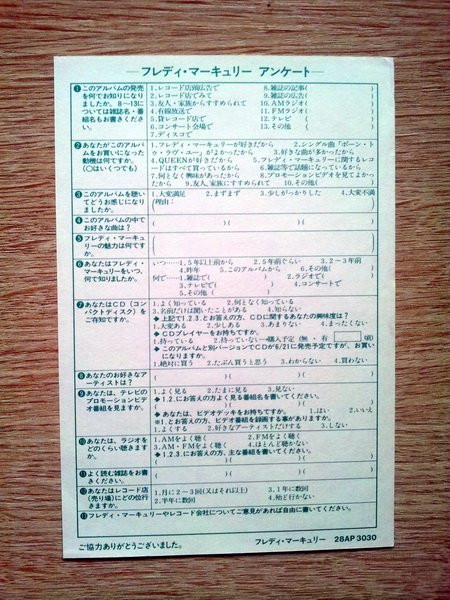 フレディ・マーキュリー アンケート
❶このアルバムの発売を何でお知りになりましたか。8〜13については雑誌名・番組名もお書きください。
1.レコード店頭広告で 8.雑誌の記事( )
2.レコード店でみて 9.雑誌の広告( )
3.友人・家族からすすめられて 10.AMラジオ( )
4.有線放送で 11.FMラジオ( )
5.貸レコード店で 12.テレビ( )
6.コンサート会場で 13.その他( )
7.ディスコで
❷あなたがこのアルバムをお買いになった動機は何ですか。(○はいくつでも)
1.フレディ・マーキュリーが好きだから 2.シングル曲「ボーン・トゥ・ラヴ・ユー」がよかったから 3.好きな曲が多かったから
4.QUEENが好きだから 5.フレディ・マーキュリーに関するレコードはすべて買っているから 6.雑誌等で話題になっているから
7.何となく興味があったから 8.プロモーションビデオを見てよかったから 9.友人、家族にすすめられて 10.その他( )
❸このアルバムを聴いてどうお感じになりましたか。
1.大変満足 2.まずまず 3.少しがっかりした 4.大変不満
(理由:
❹このアルバムの中でお好きな曲は?
( )( )( )
❺フレディ・マーキュリーの魅力は何ですか。
❻あなたはフレディ・マーキュリーをいつ、何で知りましたか。
いつ……1.5年以上前から 2.5年前ぐらい 3.2〜3年前
4.昨年 5.このアルバムから 6.その他( )
何で…1.雑誌で( ) 2.ラジオで( )
3.テレビで( ) 4.コンサートで
5.その他( )
❼あなたはCD(コンパクトディスク)をご存知ですか。
1.よく知っている 2.何となく知っている
3.名前だけは聞いたことがある 4.知らない
◆上記で1.2.3.とお答えの方、CDに関するあなたの興味度は?
1.大変ある 2.少しある 3.あまりない 4.まったくない
◆CDプレイヤーをお持ちですか。
1.持っている 2.持っていない→購入予定(無・有 頃)
◆このアルバムと別バージョンでCDが6/21に発売予定ですが、お買いになりますか。
1.絶対に買う 2.たぶん買うと思う 3.わからない 4.買わない
❽あなたのお好きなアーティストは?
( )( )( )
❾あなたは、テレビのプロモーションビデオ番組を見ますか。
1.よく見る 2.たまに見る 3.見ない
◆1.2.にお答えの方よく見る番組名を書いてください。
( )( )
◆あなたは、ビデオデッキをお持ちですか。 1.はい 2.いいえ
※1.とお答えの方、ビデオ番組を録画する事がありますか。
1.よくする 2.好きなアーティストだけする 3.しない
❿あなたは、ラジオをどのくらい聴きますか。
1.AMをよく聴く 2.FMをよく聴く
3.AM・FMをよく聴く 4.ほとんど聴かない
◆1.2.3.にお答えの方、主な番組を書いてください。
( )( )
⓫よく読む雑誌をお書きください。
( )( )( )
⓬あなたはレコード店(売り場)にどの位行きますか。
1.月に2〜3回(又はそれ以上) 3.1年に数回
2.半年に数回 4.殆ど行かない
⓭フレディ・マーキュリーやレコード会社についてご意見があれば自由に書いてください。
ご協力ありがとうございました。
フレディ・マーキュリー 28AP 3030